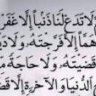 وَلَا تَدَعْ لَنَا ذَنْبًا إِلَّا غَفَرْ
هَمًّا إِلَّا فَرَّجْتَهُ، وَلَا دَ
قَضَيْتَهُ، وَلَا حَاجَةً مِـ
الدُّنْيَا وَالْآخِرَةِ إِلَّا قَضَـ